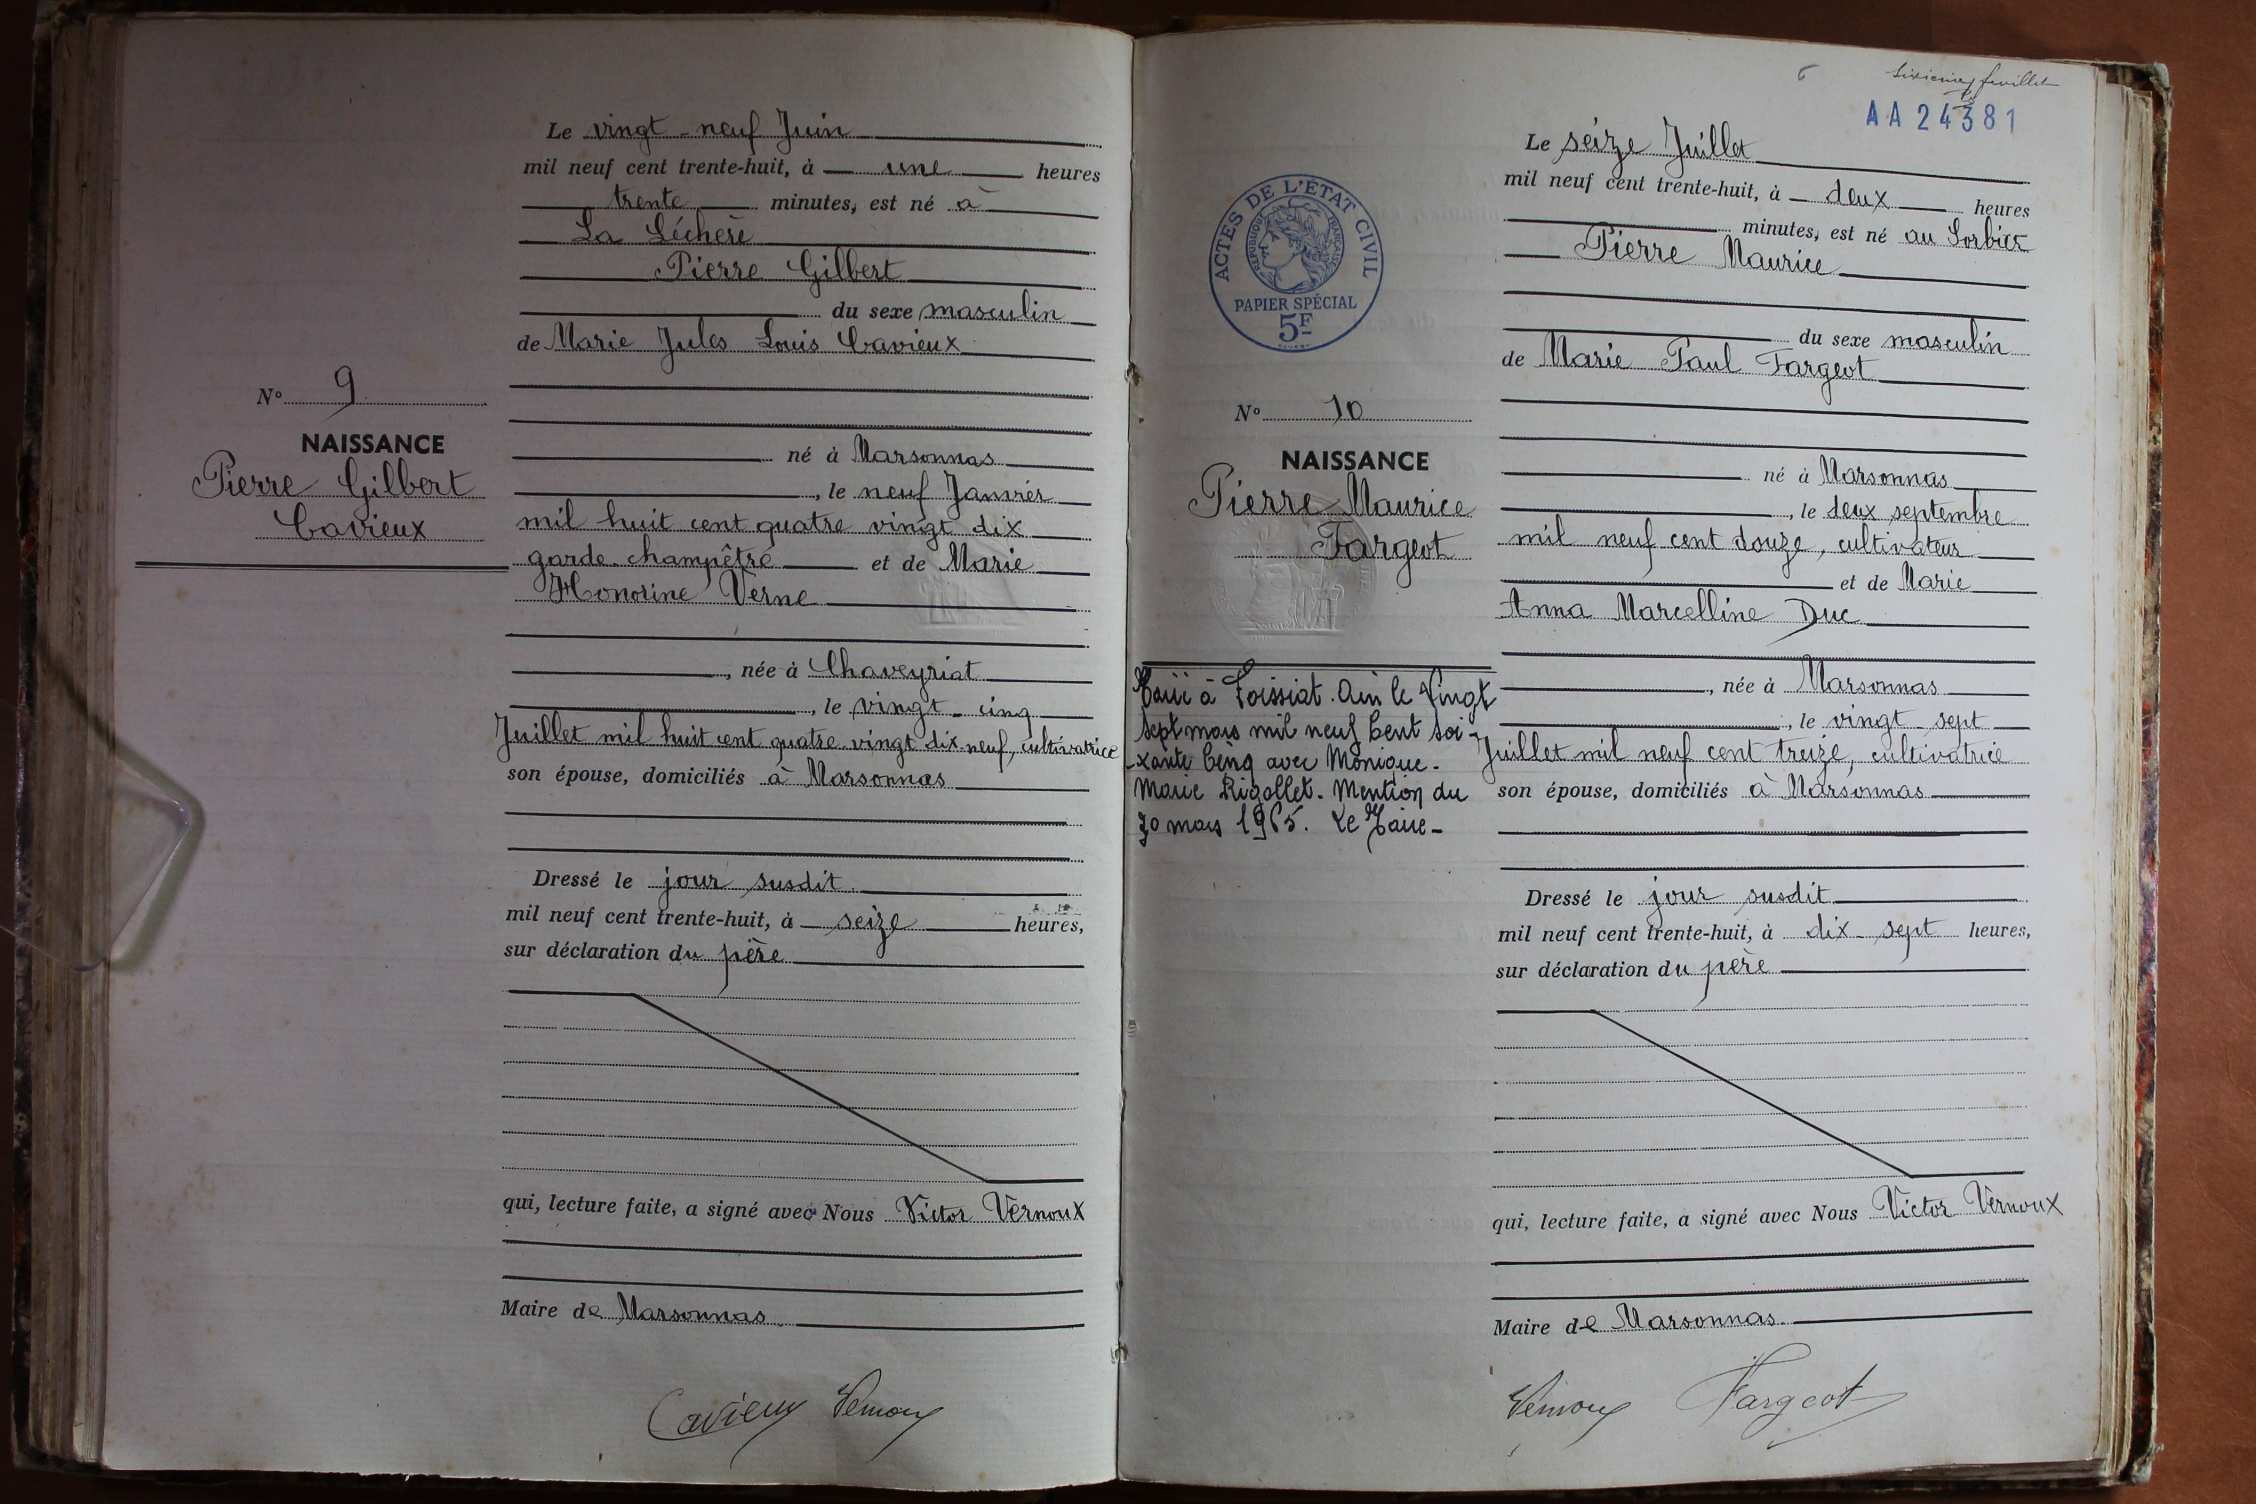 N° 9
NAISSANCE
Pierre Gilbert
Cavieux
Le vingt-neuf Juin
mil neuf cent trente-huit, à une heures
trente minutes, est né à
La Léchère
Pierre Gilbert
du sexe masculin
de Marie Jules Louis Cavieux
né à Marsonnas
, le neuf Janvier
mil huit cent quatre vingt dix
garde-champêtre et de Marie
Honorine Verne
, née à Chaveyriat
, le vingt-cinq
Juillet mil huit cent quatre vingt dix-neuf, cultivatrice
son épouse, domiciliés à Marsonnas
Dressé le jour susdit
mil neuf cent trente-huit, à seize heures,
sur déclaration du père
qui, lecture faite, a signé avec Nous Victor Vernoux
Maire de Marsonnas
Cavieux Vernoux
6
sixième feuillet
AA 24381
ACTES DE L'ETAT CIVIL
REPUBLIQUE FRANÇAISE
PAPIER SPÉCIAL
5F
N° 10
NAISSANCE
Pierre Maurice
Fargeot
Marié à Foissiat. Ain le Vingt
sept mars mil neuf Cent soi-
-xante Cinq avec Monique-
Marie Rigollet. Mention du
30 mars 1965. Le Maire-
Le seize Juillet
mil neuf cent trente-huit, à deux heures
minutes, est né au Sorbier
Pierre Maurice
du sexe masculin
de Marie Paul Fargeot
né à Marsonnas
, le deux septembre
mil neuf cent douze, cultivateur
et de Marie
Anna Marcelline Duc
, née à Marsonnas
, le vingt-sept
Juillet mil neuf cent treize, cultivatrice
son épouse, domiciliés à Marsonnas
Dressé le jour susdit
mil neuf cent trente-huit, à dix-sept heures,
sur déclaration du père
qui, lecture faite, a signé avec Nous Victor Vernoux
Maire de Marsonnas
Vernoux Fargeot